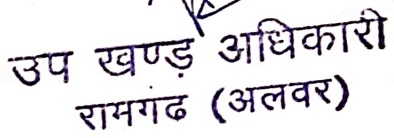 उप खण्ड़ अधिकारी
रामगंढ (अलवर)